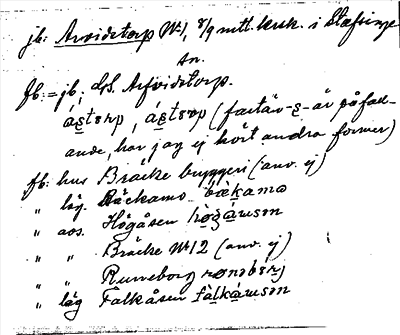 jb: Arvidstorp No 1, 8/9 mtl. krnk. i Stafsinge
sn.
fb: = jb, GS. Arfvidstorp.
às̱tɷrp, ás̱tɷrp (fastän -s̱- är påfall-
ande, har jag ej hört andra former)
fb: hus Bräcke byggeri (anv. ej)
" lög. Bäckamo bæ̀kamo
" avs. Högåsen hø̀gå̱usɷn
" " Bräcke No 12 (anv. ej)
" " Runneborg rɷnəbórj
" läg Falkåsen fàlkå̱usɷn